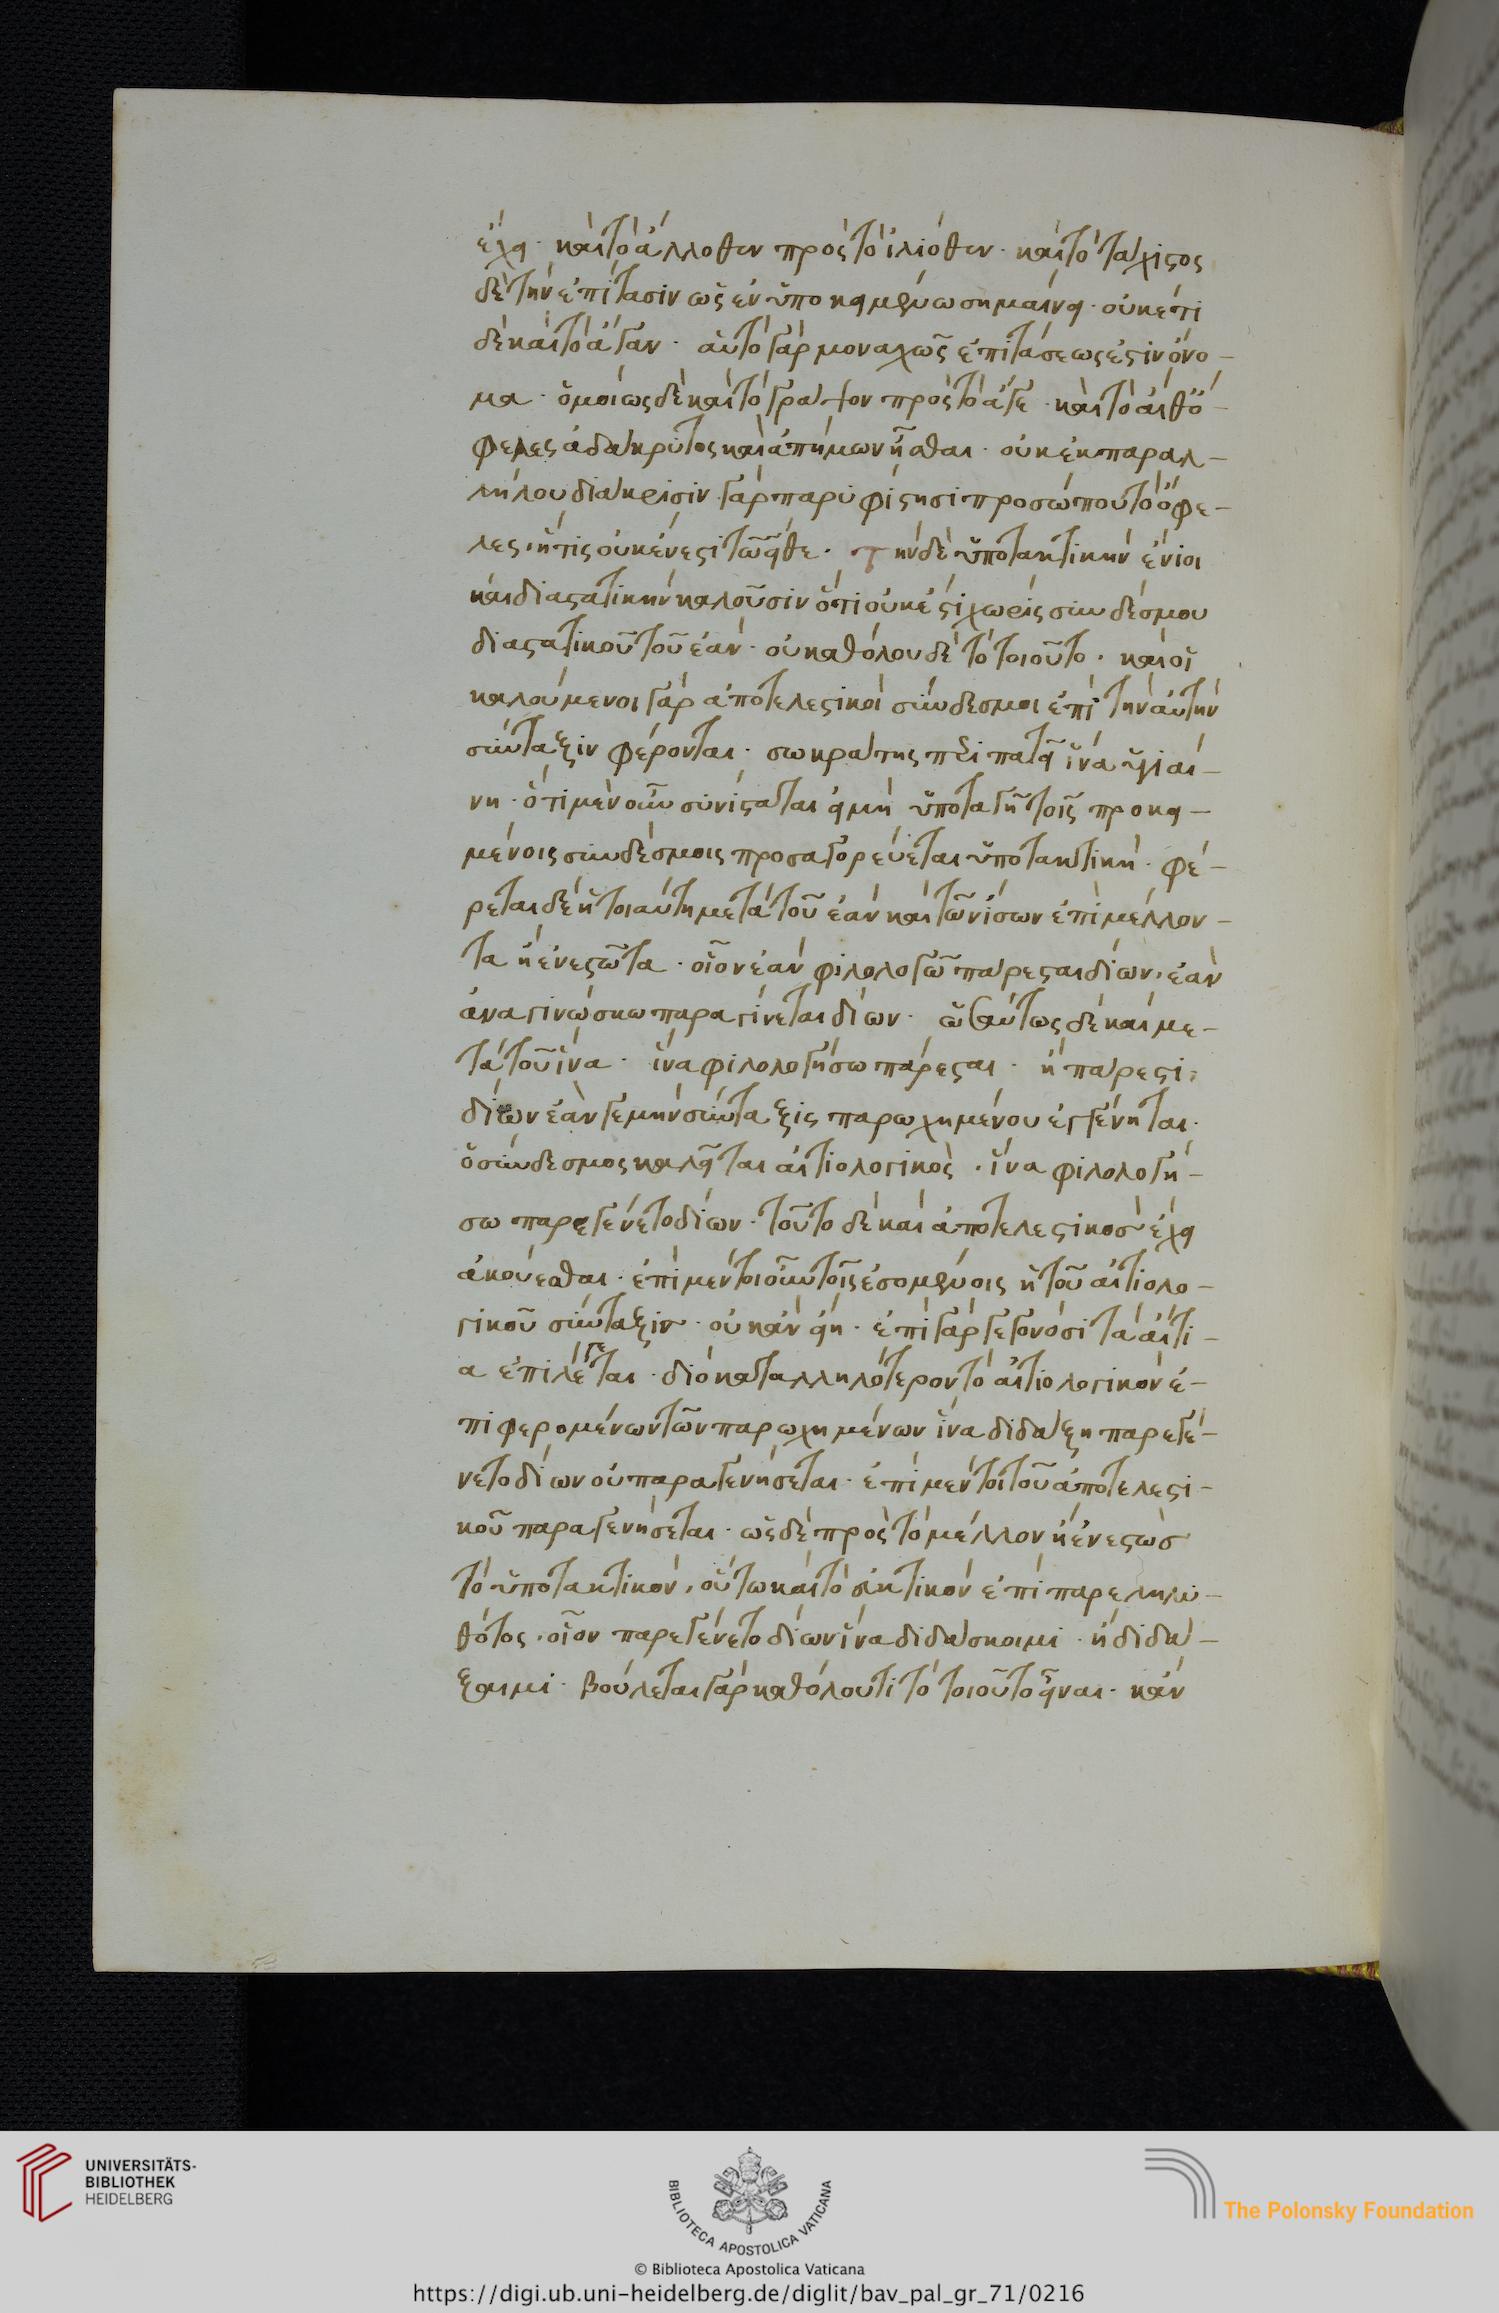 ἔχει· καὶ τὸ ἄλλοθεν πρὸς τὸ ἰλιόθεν· καὶ τὸ τάχιστος
δὲ τὴν ἐπίτασιν ὡς ἐν ὑποκειμένω σημαίνει· οὐκέτι
δὲ καὶ τὸ ἄγαν· αὐτὸ γὰρ μοναχῶς ἐπιτάσεως ἐστὶν ὄνο-
μα· ὁμοίως δὲ καὶ τὸ γράψον πρὸς τὸ ἄγε· καὶ τὸ αἴθ' ὄ-
φελες ἀδάκρυτος καὶ ἀπήμων ἧσθαι· οὐκ ἐκ παραλ-
λήλου διάκρισιν γὰρ παρυφίστησι προσώπου τὸ ὄφε-
λες, ἥτις οὐκ ἔνεστι τῶ εἴθε· τὴν δὲ ὑποτακτικὴν ἔνιοι
καὶ διαστατικὴν καλοῦσιν ὅτι οὐκ ἔστι χωρὶς συνδέσμου
διαστατικοῦ τοῦ ἐάν· οὐ καθόλου δὲ τὸ τοιοῦτο· καὶ οἱ
καλούμενοι γὰρ ἀποτελεστικοὶ σύνδεσμοι ἐπὶ τὴν αὐτὴν
σύνταξιν φέρονται· σωκράτης περιπατεῖ ἵνα ὑγιαί-
νη· ὅτι μὲν οὖν συνίσταται εἰ μὴ ὑποταγῆ τοῖς προκει-
μένοις συνδέσμοις προσαγορεύεται ὑποτακτική· φέ-
ρεται δὲ ἡ τοιαύτη μετὰ τοῦ ἐὰν καὶ τῶν ἴσων ἐπὶ μέλλον-
τα ἢ ἐνεστῶτα· οἷον ἐὰν φιλολογῶ παρέσται δίων, ἐὰν
ἀναγινώσκω παραγίνεται δίων· ὡσαύτως δὲ καὶ με-
τὰ τοῦ ἵνα· ἵνα φιλολογήσω παρέσται· ἢ πάρεστι
δίων ἐὰν γε μὴν σύνταξις παρωχημένου ἐγγένηται·
ὁ σύνδεσμος καλεῖται αἰτιολογικὸς· ἵνα φιλολογή-
σω παρεγένετο δίων· τοῦτο δὲ καὶ ἀποτελεστικὸσ ἔχει
ἀκούεσθαι· ἐπὶ μέντοι οὖν τοῖς ἐσομένοις ἡ τοῦ αἰτιολο-
γικοῦ σύνταξιν· οὐκ ἂν εἴη· ἐπὶ γὰρ γεγονόσι τὰ αἴτι-
α ἐπιλέγεται· διὸ καταλληλότερον τὸ αἰτιολογικὸν ἐ-
πιφερομένων τῶν παρωχημένων ἵνα διδάξη παρεγέ-
νετο δίων οὐ παραγενήσεται· ἐπὶ μέντοι τοῦ ἀποτελεστι-
κοῦ παραγενήσεται· ὡς δὲ πρὸς τὸ μέλλον ἢ ἐνεστὼσ
τὸ ὑποτακτικόν, οὕτω καὶ τὸ εὐκτικὸν ἐπὶ παρεληλυ-
θότος, οἷον παρεγένετο δίων ἵνα διδάσκοιμι· ἢ διδά-
ξαιμι· βούλεται γὰρ καθόλου τι τὸ τοιοῦτο εἶναι· κἂν
UNIVERSITÄTS-
BIBLIOTHEK
HEIDELBERG
BIBLIOTECA APOSTOLICA VATICANA
The Polonsky Foundation
© Biblioteca Apostolica Vaticana
https://digi.ub.uni-heidelberg.de/diglit/bav_pal_gr_71/0216